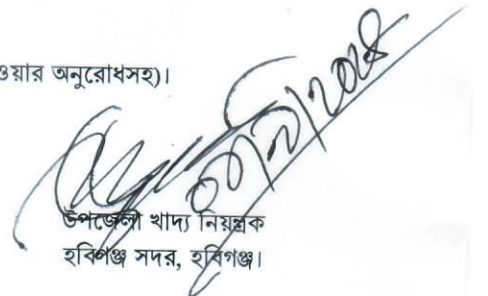 ওয়ার অনুরোধসহ)।
উপজেলা খাদ্য নিয়ন্ত্রক
হবিগঞ্জ সদর, হবিগঞ্জ।